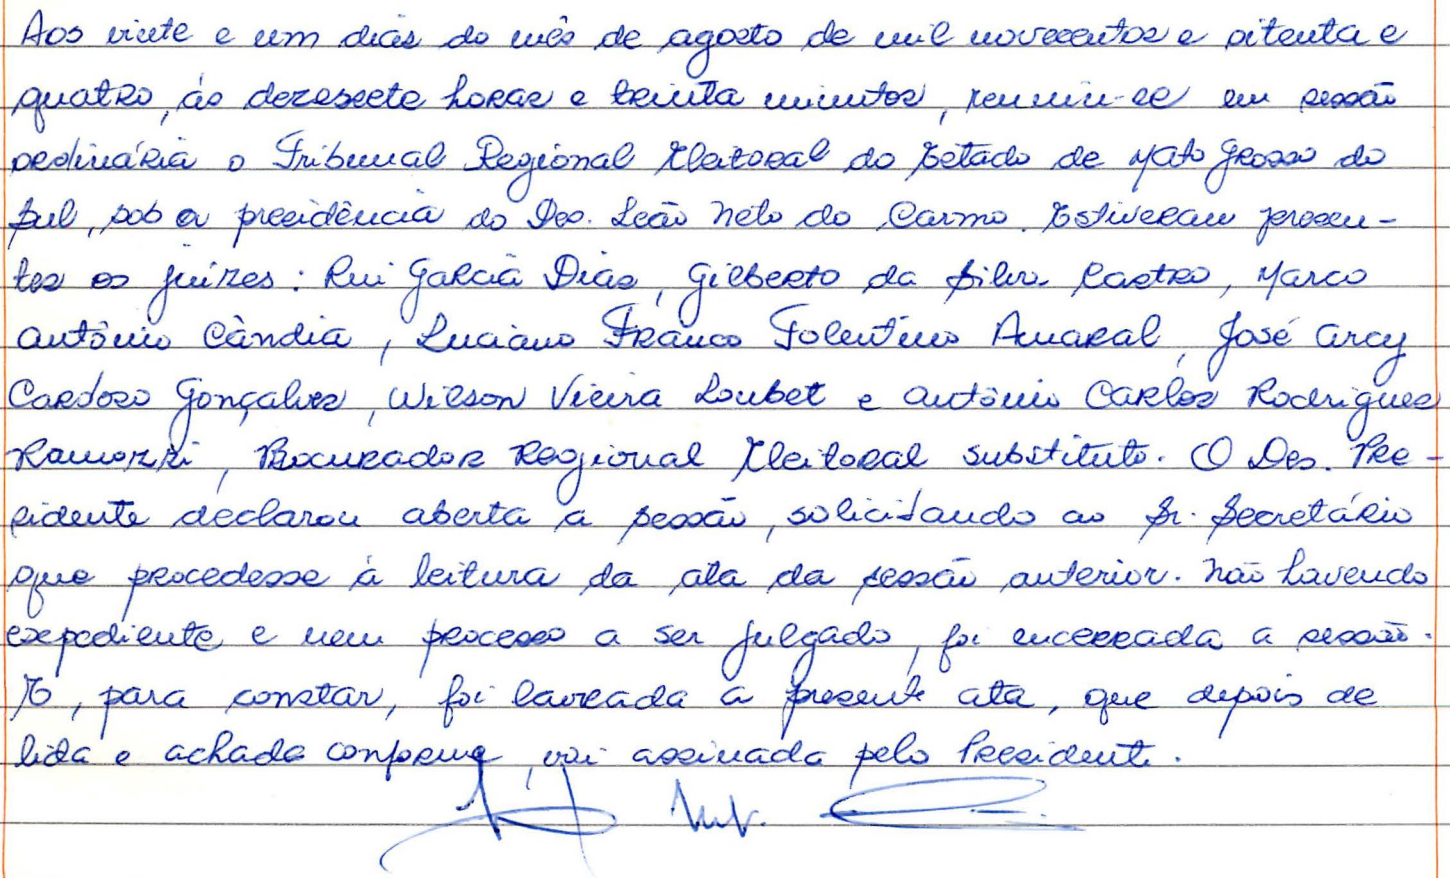 Aos vinte e um dias do mês de agosto de mil novecentos e oitenta e
quatro, às dezessete horas e trinta minutos, reuniu-se em sessão
ordinária o Tribunal Regional Eleitoral do Estado de Mato Grosso do
Sul, sob a presidência do Des. Leão Neto do Carmo. Estiveram presen-
tes os juízes: Rui Garcia Dias, Gilberto da Silva Castro, Marco
Antônio Cândia, Luciano Franco Tolentino Amaral, José Arcy
Cardoso Gonçalves, Wilson Vieira Loubet e Antônio Carlos Rodrigues
Ramozzi, Procurador Regional Eleitoral substituto. O Des. Pre-
sidente declarou aberta a sessão, solicitando ao Sr. Secretário
que procedesse à leitura da ata da sessão anterior. Não havendo
expediente e nem processo a ser julgado, foi encerrada a sessão.
E, para constar, foi lavrada a presente ata, que depois de
lida e achada conforme, vai assinada pelo Presidente.